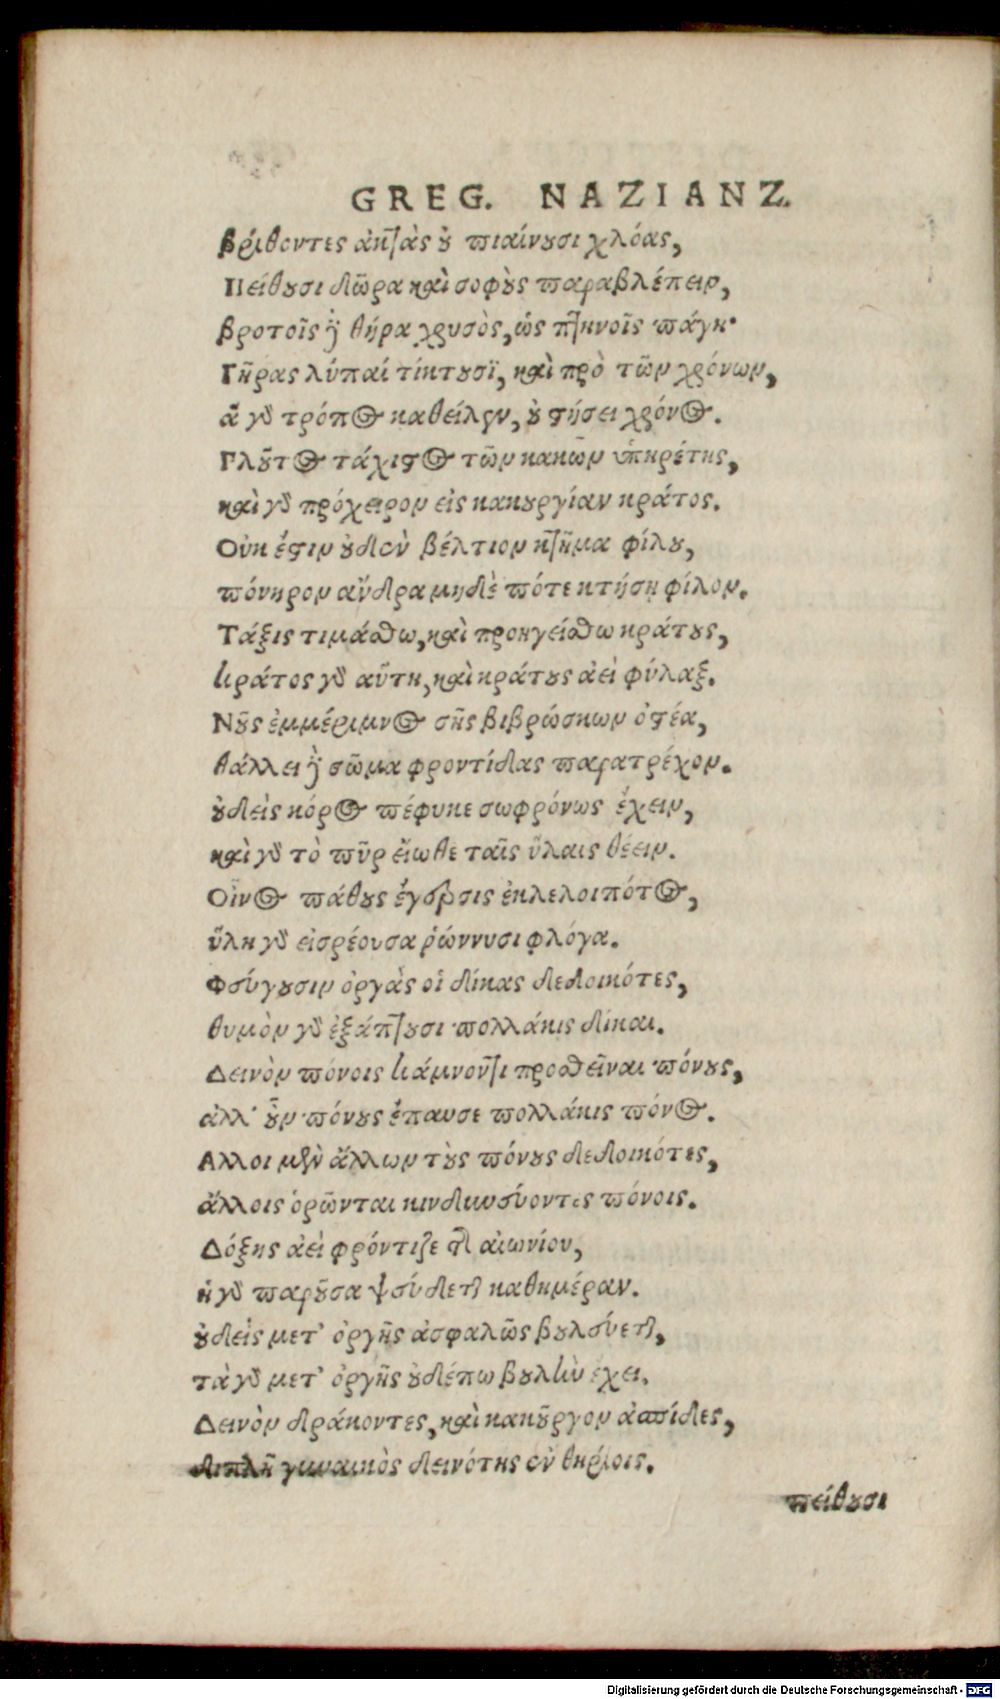 GREG. NAZIANZ.
βρίθοντες ἀκτὰς οὐ πιαίνουσι χλόας,
Πείθουσι δῶρα καὶ σοφοὺς παραβλέπειν,
βροτοῖς δὲ θήρα χρυσὸς, ὡς πτηνοῖς πάγη·
Γῆρας λύπαί τίκτουσϊ, καὶ πρὸ τῶν χρόνων,
ἃ γὰρ τρόπος καθεῖλεν, οὐ στήσει χρόνος.
Πλοῦτος τάχιστος τῶν κακῶν ὑπηρέτης,
καὶ γὰρ πρόχειρον εἰς κακουργίαν κράτος.
Οὐκ ἔστιν οὐδὲν βέλτιον κτῆμα φίλου,
πόνηρον ἄνδρα μηδὲ πότε κτήσῃ φίλον.
Τάξις τιμάσθω, καὶ προηγείσθω κράτους,
κράτος γὰρ αὕτη, καὶ κράτους ἀεὶ φύλαξ.
Νοῦς ἐμμέριμνος σῆς βιβρώσκων ὀστέα,
θάλλει δὲ σῶμα φροντίδας παρατρέχον.
οὐδεὶς κόρος πέφυκε σωφρόνως ἔχειν,
καὶ γὰρ τὸ πῦρ εἴωθε ταῖς ὕλαις θέειν.
Οἶνος πάθους ἔγερσις ἐκλελοιπότος,
ὕλη γὰρ εἰσρέουσα ῥώννυσι φλόγα.
Φεύγουσιν ὀργὰς οἱ δίκας δεδοικότες,
θυμὸν γὰρ ἐξάπτουσι πολλάκις δίκαι.
Δεινὸν πόνοις κάμνοντι προσθεῖναι πόνους,
ἀλλ' οὖν πόνους ἔπαυσε πολλάκις πόνος.
Αλλοι μὲν ἄλλων τοὺς πόνους δεδοικότες,
ἄλλοις ὁρῶνται κινδυνεύοντες πόνοις.
Δόξης ἀεὶ φρόντιζε τῆς αἰωνίου,
ἡ γὰρ παροῦσα ψεύδεται καθημέραν.
οὐδεὶς μετ' ὀργῆς ἀσφαλῶς βουλεύεται,
τὰ γὰρ μετ' ὀργῆς οὐδέπω βουλὴν ἔχει.
Δεινὸν δράκοντες, καὶ κακοῦργον ἀσπίδες,
διπλῆ γυναικὸς δεινότης ἐν θηρίοις.
πείθουσι
Digitalisierung gefördert durch die Deutsche Forschungsgemeinschaft - DFG